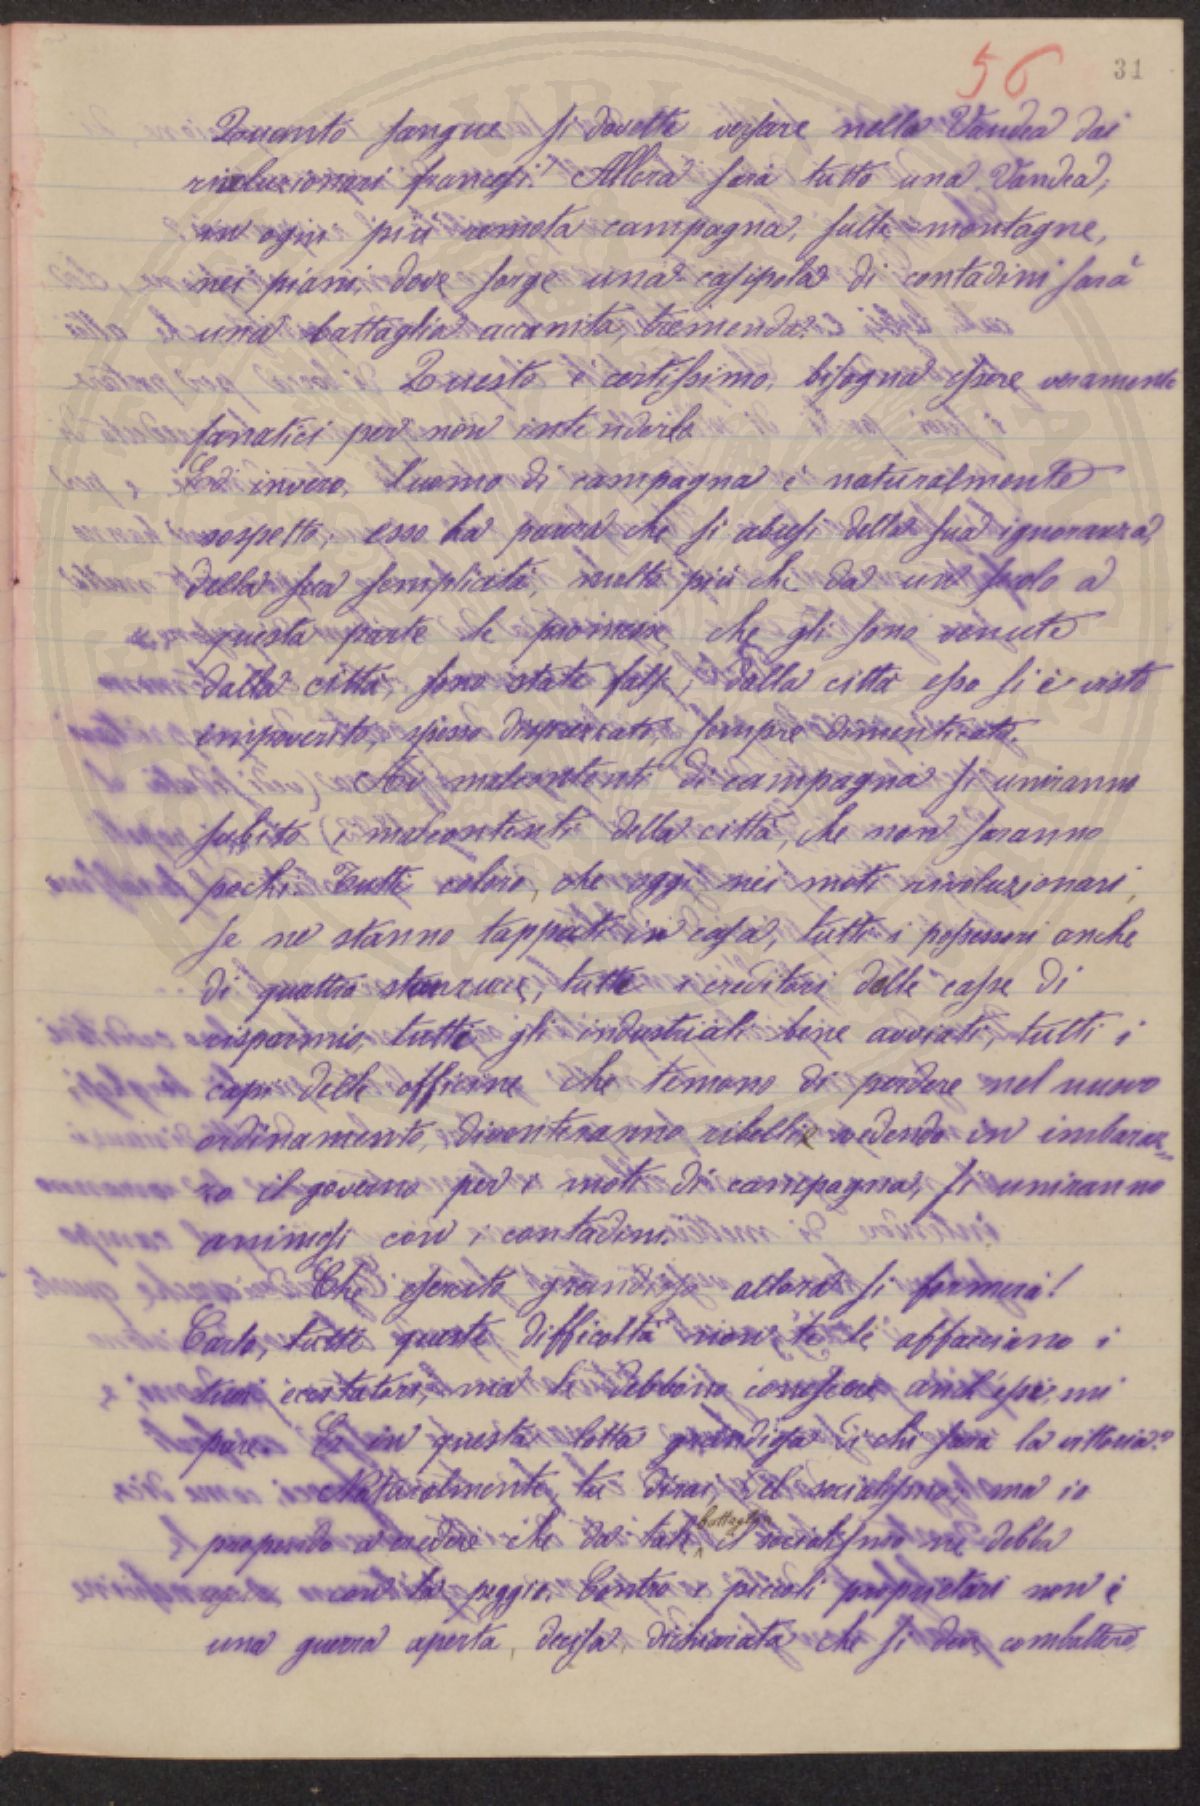 56 31
Quanto sangue si dovette versare nella Vandea dai
rivoluzionari francesi! Allora sarà tutto una Vandea,
in ogni più remota campagna, sulle montagne,
nei piani, dove sorge una casipola di contadini sarà
una battaglia accanita, tremenda.
Questo è certissimo, bisogna essere veramente
fanatici per non intenderlo
Ed invero, l'uomo di campagna è naturalmente
sospetto, esso ha paura che si abusi della sua ignoranza,
della sua semplicità, molto più che da un secolo a
questa parte le promesse, che gli sono venute
dalla città, sono state false, dalla città esso si è visto
impoverito, spesso disprezzato, sempre dimenticato.
Ai malcontenti di campagna si uniranno
subito i malcontenti della città, che non saranno
pochi. Tutti coloro, che oggi nei moti rivoluzionari,
se ne stanno tappati in casa, tutti i possessori anche
di quattro stanzucce, tutti i creditori delle casse di
risparmio, tutti gli industriali bene avviati, tutti i
capi delle officine che temono di perdere nel nuovo
ordinamento, diventeranno ribelli e vedendo in imbaraz=
zo il governo per i moti di campagna, si uniranno
animosi con i contadini.
Che esercito grandioso allora si formerà!
Carlo, tutte queste difficoltà non te le affacciano i
tuoi eccitatori, ma le debbono conoscere anch'essi, mi
pare. E in questa lotta grandiosa di chi sarà la vittoria?
Naturalmente, tu dirai, del socialismo; ma io
propendo a credere che da tale battaglia il socialismo ne debba
con la peggio. Contro i piccoli proprietari non è
una guerra aperta, decisa, dichiarata che si deve combattere,